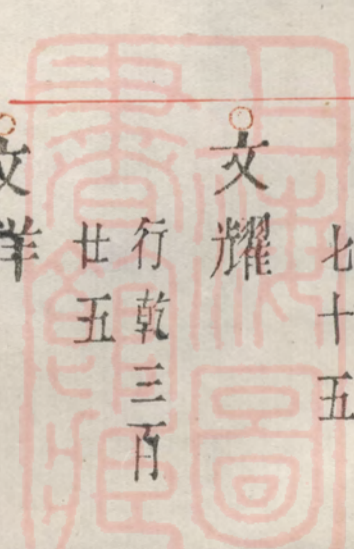 七十五
文耀
行乾三百
廿五
文祥